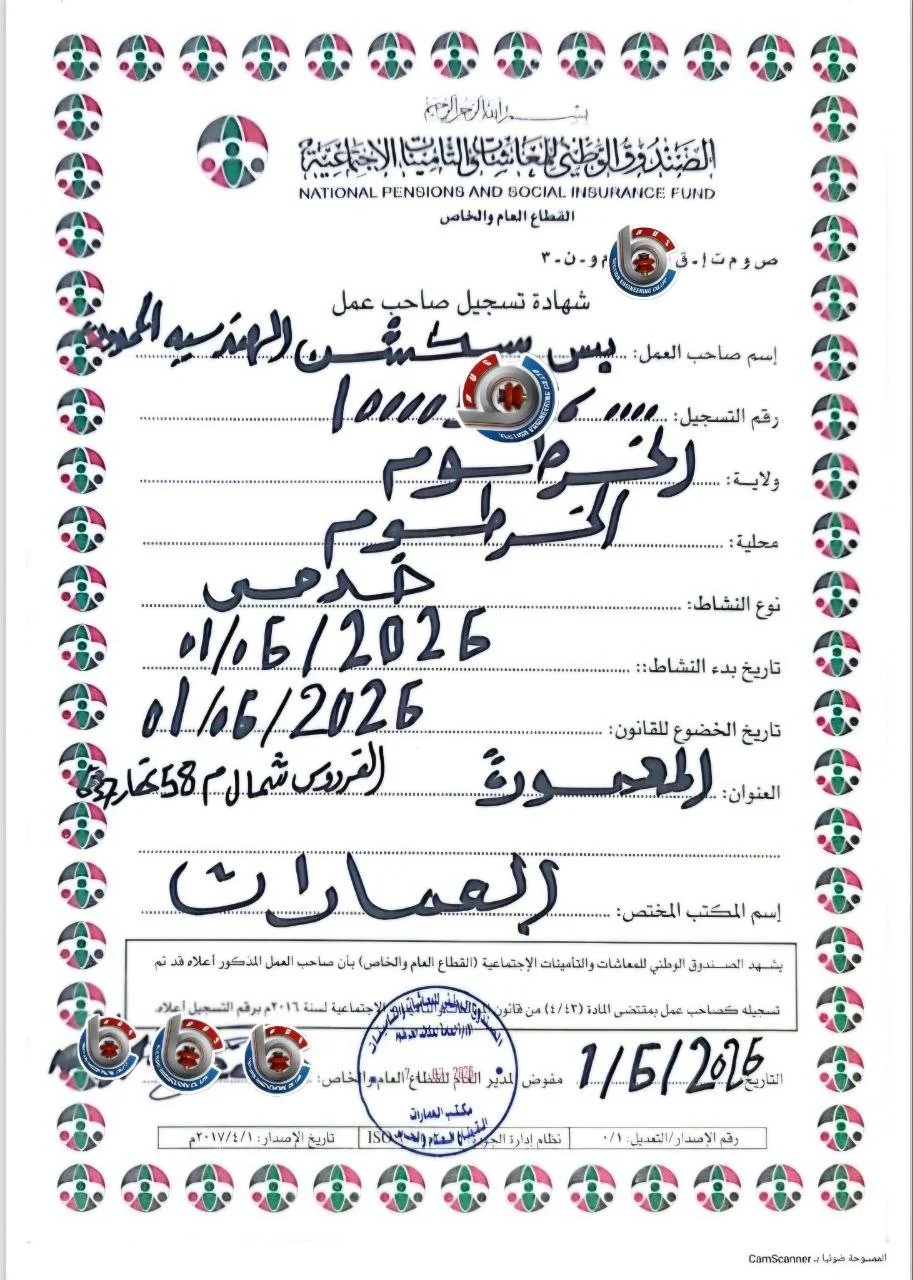 بسم الله الرحمن الرحيم
الصندوق الوطني للمعاشات والتأمينات الاجتماعية
NATIONAL PENSIONS AND SOCIAL INSURANCE FUND
القطاع العام والخاص
ص و م ت إ - ق م و - ن - ٣
شهادة تسجيل صاحب عمل
إسم صاحب العمل: بس سكشن الهندسيه
رقم التسجيل:
ولاية: الخرطوم
محلية: الخرطوم
نوع النشاط: خدمى
تاريخ بدء النشاط:: 01/06/2026
تاريخ الخضوع للقانون: 01/06/2026
العنوان: المعمورة الفردوس شمال م 58
إسم المكتب المختص: العمارات
يشهد الصندوق الوطني للمعاشات والتأمينات الإجتماعية (القطاع العام والخاص) بأن صاحب العمل المذكور أعلاه قد تم
تسجيله كصاحب عمل بمقتضى المادة (٤/٤٣) من قانون الإجتماعية لسنة ٢٠١٦م برقم التسجيل أعلاه
التاريخ 1/6/2026 مفوض لمدير العام للقطاع العام والخاص:
مكتب العمارات
رقم الإصدار/التعديل: ٠/١ نظام إدارة الجودة ISO تاريخ الإصدار: ٢٠١٧/٤/١م
الممسوحة ضوئيا بـ CamScanner